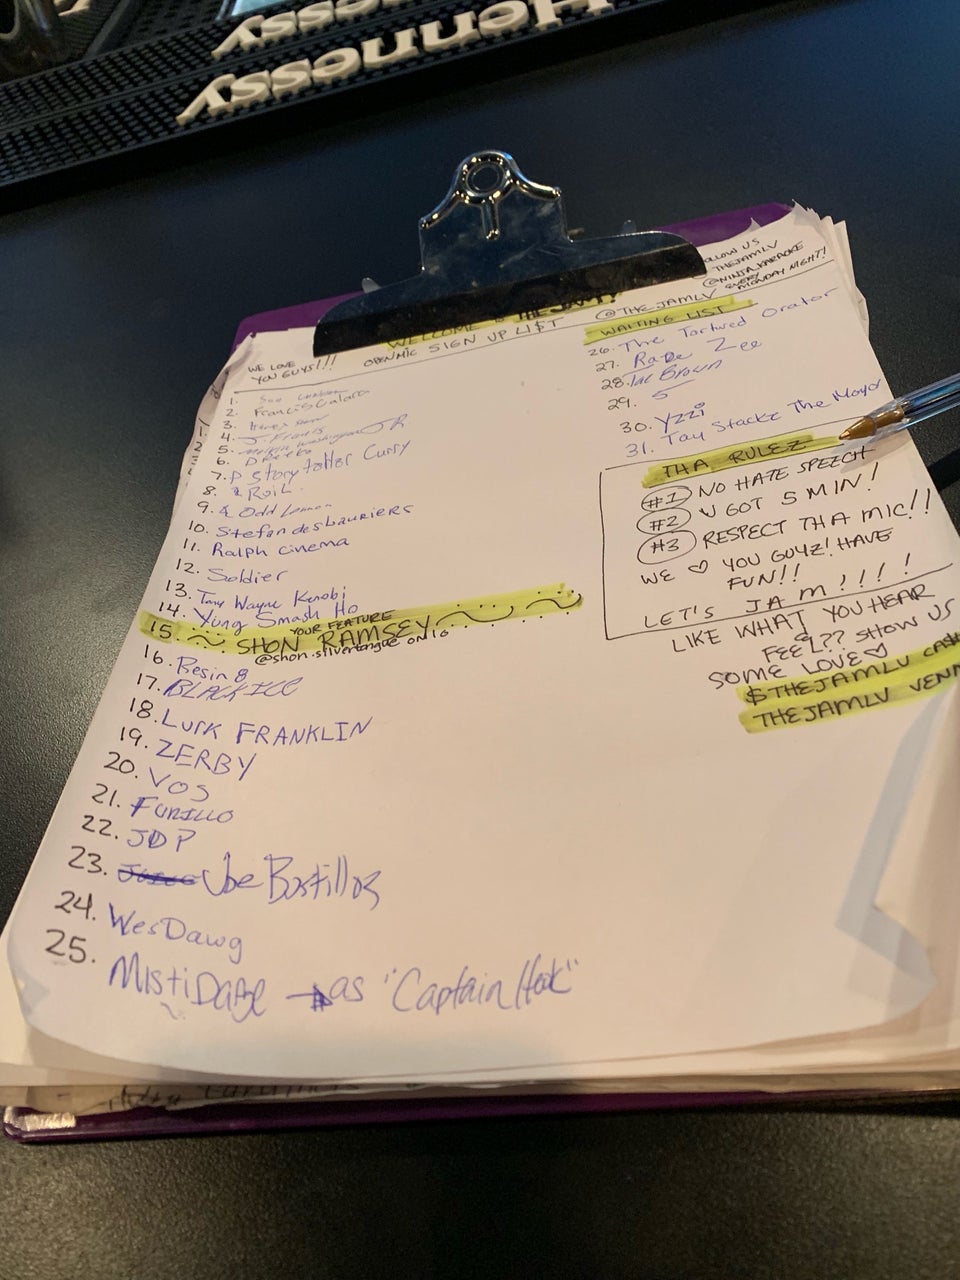 Hennessy
Hennessy
FOLLOW US
THEJAMLV
@NINJAKARAOKE
EVERY
MONDAY NIGHT!
WELCOME
THE JAM!
@THEJAMLV
WE LOVE
YOU GUYS!!!
OPEN MIC SIGN UP LI$T
1.
2. Francis
3.
4. J. Francis
5. Washington JR
6.
7. P Story totter Curry
8. & Roil
9. & Odd Lemon
10. Stefan desbauriers
11. Ralph Cinema
12. Soldier
13. Tony Wayne Kenobi
14. Yung Smash Ho
YOUR FEATURE
15. SHON RAMSEY
@shon.silvertongue on IG
16. Resin 8
17. BLACK ICE
18. LURK FRANKLIN
19. ZERBY
20. VOS
21. FURILLO
22. JDP
23. Joe Bustillos
24. WesDawg
25. Misti Dage → as "Captain Hook"
WAITING LIST
26. The Tortured Orator
27. Rade Zee
28. Brown
29. S
30. Yzzi
31. Tay Stackz The Mayor
THA RULEZ
#1 NO HATE SPEECH
#2 U GOT 5 MIN!
#3 RESPECT THA MIC!!
WE ♡ YOU GUYZ! HAVE
FUN!!
LET'S JAM!!!!
LIKE WHAT YOU HEAR
FEEL?? SHOW US
SOME LOVE♡
$THEJAMLV CA$
THEJAMLV VENM